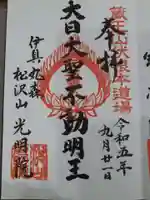 奉拝
大日大聖不動明王
伊具丸森
松沢山 光明院
令和五年
九月廿一日